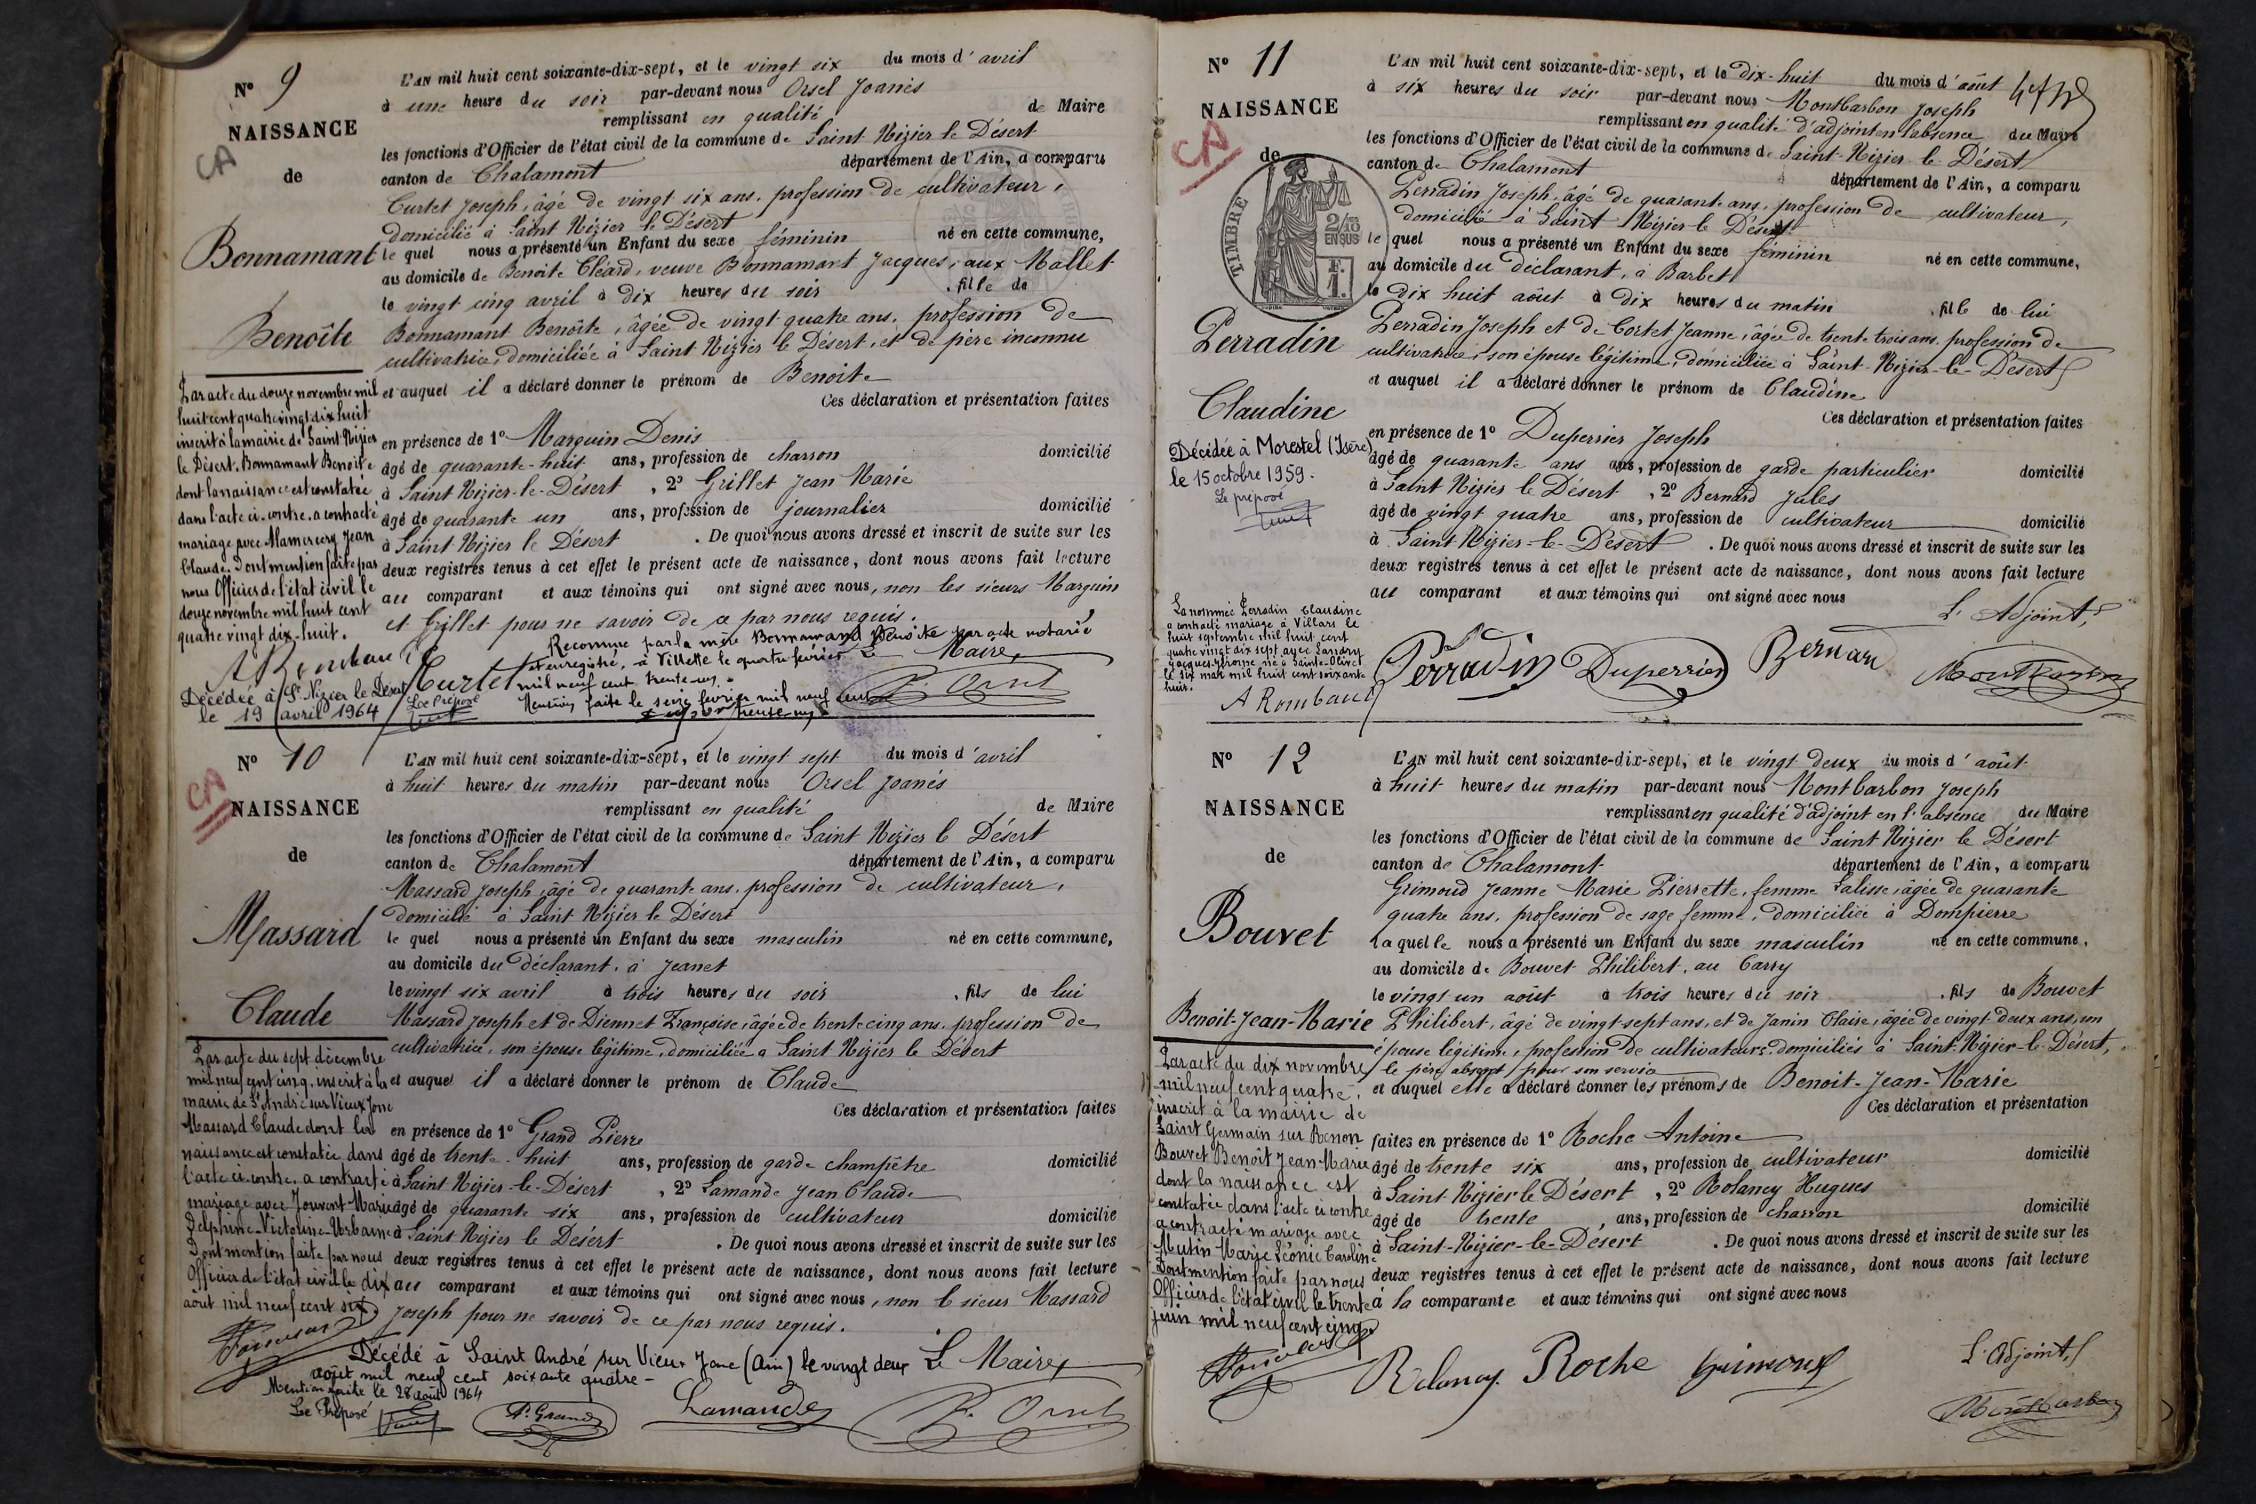 N° 9
NAISSANCE
CA
de
Bonnamant
Benoîte
L'AN mil huit cent soixante-dix-sept, et le vingt six du mois d'avril
à une heure du soir par-devant nous Orsel Joanès
remplissant en qualité de Maire
les fonctions d'Officier de l'état civil de la commune de Saint Nizier le Désert
canton de Chalamont département de l'Ain, a comparu
Curtet Joseph, âgé de vingt six ans, profession de cultivateur,
domicilié à Saint Nizier le Désert
le quel nous a présenté un Enfant du sexe féminin né en cette commune,
au domicile de Benoîte Cléard, veuve Bonnamant Jacques, aux Mallet
le vingt cinq avril à dix heures du soir, fille de
Bonnamant Benoîte, âgée de vingt quatre ans, profession de
cultivatrice, domiciliée à Saint Nizier le Désert, et de père inconnu
et auquel il a déclaré donner le prénom de Benoîte
Ces déclaration et présentation faites
en présence de 1° Marguin Denis
âgé de quarante-huit ans, profession de charron domicilié
à Saint Nizier-le-Désert, 2° Grillet Jean Marie
âgé de quarante un ans, profession de journalier domicilié
à Saint Nizier le Désert. De quoi nous avons dressé et inscrit de suite sur les
deux registres tenus à cet effet le présent acte de naissance, dont nous avons fait lecture
au comparant et aux témoins qui ont signé avec nous, non les sieurs Marguin
et Grillet pour ne savoir de ce par nous requis.
Reconnue par la mère Bonnamand Benoîte par acte notarié
et enregistré, à Villette le quatre février
mil neuf cent trente-un.
Mention faite le seize février mil neuf cent
trente-un
Le Maire,
Curtet
J. Orsel
Par acte du douze novembre mil
huit cent quatre vingt dix huit
inscrit à la mairie de Saint Nizier
le Désert, Bonnamant Benoîte
dont la naissance est constatée
dans l'acte ci-contre, a contracté
mariage avec Alamercery Jean
Claude. Dont mention faite par
nous Officier de l'état civil le
douze novembre mil huit cent
quatre vingt dix-huit.
A Rombaud
Décédée à St Nizier le Désert
le 19 avril 1964
Le Préposé
N° 10
CA
NAISSANCE
de
Massard
Claude
L'AN mil huit cent soixante-dix-sept, et le vingt sept du mois d'avril
à huit heures du matin par-devant nous Orsel Joanès
remplissant en qualité de Maire
les fonctions d'Officier de l'état civil de la commune de Saint Nizier le Désert
canton de Chalamont département de l'Ain, a comparu
Massard Joseph, âgé de quarante ans, profession de cultivateur,
domicilié à Saint Nizier le Désert
le quel nous a présenté un Enfant du sexe masculin né en cette commune,
au domicile du déclarant, à Jeanet
le vingt six avril à trois heures du soir, fils de lui
Massard Joseph et de Diennet Françoise, âgée de trente cinq ans, profession de
cultivatrice, son épouse légitime, domiciliée à Saint Nizier le Désert
et auquel il a déclaré donner le prénom de Claude
Ces déclaration et présentation faites
en présence de 1° Grand Pierre
âgé de trente-huit ans, profession de garde champêtre domicilié
à Saint Nizier-le-Désert, 2° Lamande Jean Claude
âgé de quarante six ans, profession de cultivateur domicilié
à Saint Nizier le Désert. De quoi nous avons dressé et inscrit de suite sur les
deux registres tenus à cet effet le présent acte de naissance, dont nous avons fait lecture
au comparant et aux témoins qui ont signé avec nous, non le sieur Massard
Joseph pour ne savoir de ce par nous requis.
Le Maire,
P. Grand
Lamande
J. Orsel
Par acte du sept décembre
mil neuf cent cinq, inscrit à la
mairie de St André sur Vieux Jonc
Massard Claude dont la
naissance est constatée dans
l'acte ci-contre, a contracté
mariage avec Jouvent Marie
Delphine-Victorine-Urbanie
Dont mention faite par nous
Officier de l'état civil le dix
août mil neuf cent six
Décédé à Saint André sur Vieux Jonc (Ain) le vingt deux
août mil neuf cent soixante quatre -
Mention faite le 28 août 1964
Le Préposé
N° 11
NAISSANCE
CA
de
TIMBRE
2/10
EN SUS
F.
1.
Perradin
Claudine
L'AN mil huit cent soixante-dix-sept, et le dix-huit du mois d'août
à six heures du soir par-devant nous Montbarbon Joseph
remplissant en qualité d'adjoint en l'absence du Maire
les fonctions d'Officier de l'état civil de la commune de Saint-Nizier-le-Désert
canton de Chalamont département de l'Ain, a comparu
Perradin Joseph, âgé de quarante ans, profession de cultivateur,
domicilié à Saint Nizier-le Désert
le quel nous a présenté un Enfant du sexe féminin né en cette commune,
au domicile du déclarant, à Barbet
le dix huit août à dix heures du matin, fille de lui
Perradin Joseph et de Cortet Jeanne, âgée de trente trois ans, profession de
cultivatrice, son épouse légitime, domiciliée à Saint-Nizier-le-Désert
et auquel il a déclaré donner le prénom de Claudine
Ces déclaration et présentation faites
en présence de 1° Duperrier Joseph
âgé de quarante ans ans, profession de garde particulier domicilié
à Saint Nizier le Désert, 2° Bernard Jules
âgé de vingt quatre ans, profession de cultivateur domicilié
à Saint Nizier-le-Désert. De quoi nous avons dressé et inscrit de suite sur les
deux registres tenus à cet effet le présent acte de naissance, dont nous avons fait lecture
au comparant et aux témoins qui ont signé avec nous
L'Adjoint,
Perradin Duperrier Bernard
Montbarbon
Décédée à Morestel (Isère)
le 15 octobre 1959.
Le préposé
La nommée Perradin Claudine
a contracté mariage à Villars le
huit septembre mil huit cent
quatre vingt dix sept avec Landry
Jacques Jérôme né à Sainte-Olive
le six mai mil huit cent soixante
huit.
A Rombaud
N° 12
NAISSANCE
de
Bouvet
Benoit-Jean-Marie
L'AN mil huit cent soixante-dix-sept, et le vingt deux du mois d'août
à huit heures du matin par-devant nous Montbarbon Joseph
remplissant en qualité d'adjoint en l'absence du Maire
les fonctions d'Officier de l'état civil de la commune de Saint Nizier le Désert
canton de Chalamont département de l'Ain, a comparu
Grimoud Jeanne Marie Pierrette, femme Salisse, âgée de quarante
quatre ans, profession de sage femme, domiciliée à Dompierre
laquelle nous a présenté un Enfant du sexe masculin né en cette commune,
au domicile de Bouvet Philibert, au Carry
le vingt un août à trois heures du soir, fils de Bouvet
Philibert, âgé de vingt-sept ans, et de Janin Claire, âgée de vingt deux ans, son
épouse légitime, profession de cultivateurs domiciliés à Saint-Nizier-le-Désert,
le père absent pour son service
et auquel elle a déclaré donner les prénoms de Benoit-Jean-Marie
Ces déclaration et présentation
faites en présence de 1° Roche Antoine
âgé de trente six ans, profession de cultivateur domicilié
à Saint Nizier le Désert, 2° Rolancy Hugues
âgé de trente, ans, profession de charron domicilié
à Saint-Nizier-le-Désert. De quoi nous avons dressé et inscrit de suite sur les
deux registres tenus à cet effet le présent acte de naissance, dont nous avons fait lecture
à la comparante et aux témoins qui ont signé avec nous
L'Adjoint,
Rolancy Roche Grimoud
Montbarbon
Par acte du dix novembre
mil neuf cent quatre,
inscrit à la mairie de
Saint Germain sur Renon
Bouvet Benoît Jean-Marie
dont la naissance est
constatée dans l'acte ci contre
a contracté mariage avec
Mutin Marie Léonie Caroline
Dont mention faite par nous
Officier de l'état civil le trente
juin mil neuf cent cinq.